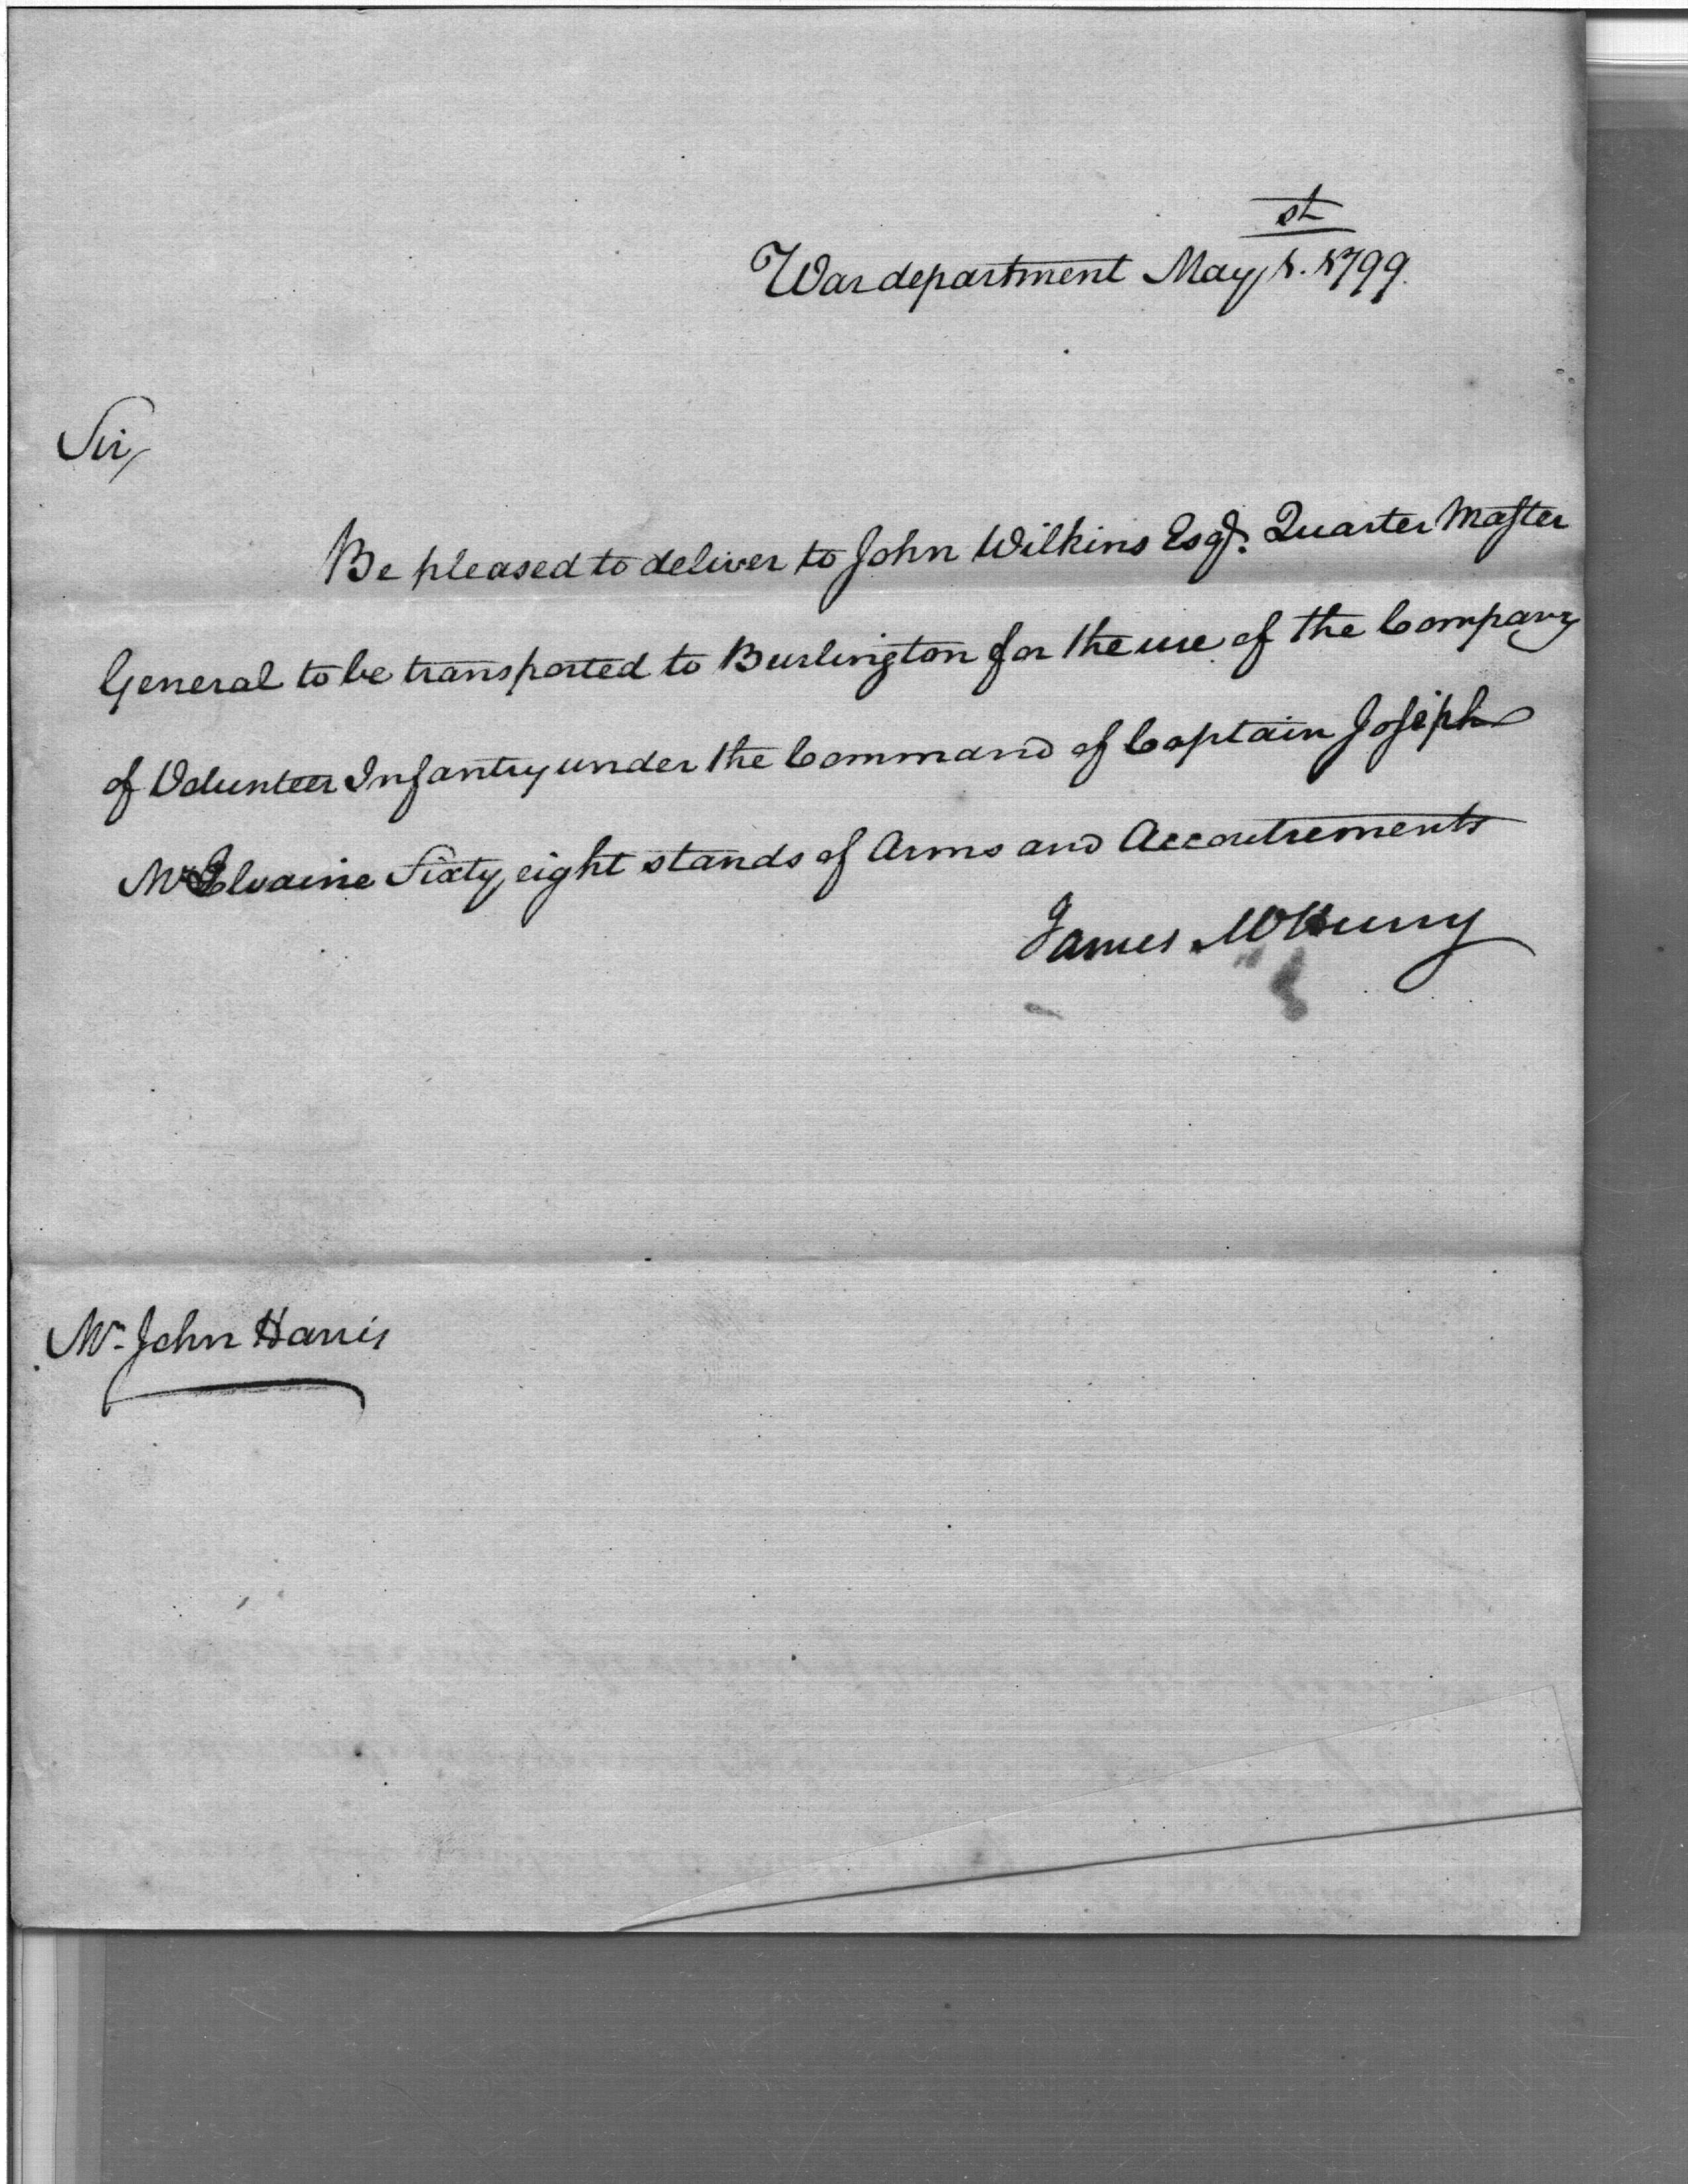 War department May 1st. 1799.
Sir,
Be pleased to deliver to John Wilkins Esqr. Quarter Master
General to be transported to Burlington for the use of the Company
of Volunteer Infantry under the Command of Captain Joseph
McElvaine Sixty eight stands of Arms and Accoutrements
James McHenry
Mr. John Harris